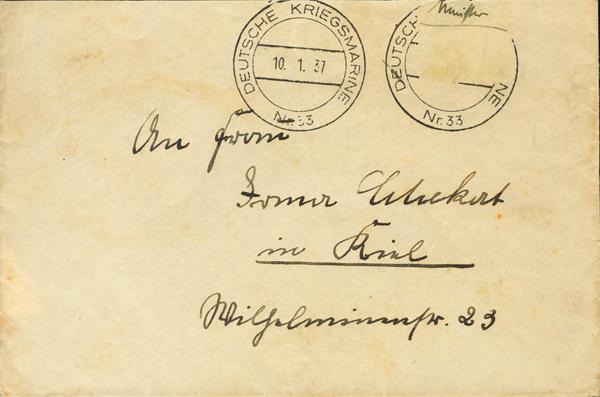 DEUTSCHE KRIEGSMARINE
10. 1. 37
Nr. 33
DEUTSCH NE
Nr. 33
An Frau
Irma
in Kiel
Wilhelminenstr. 23